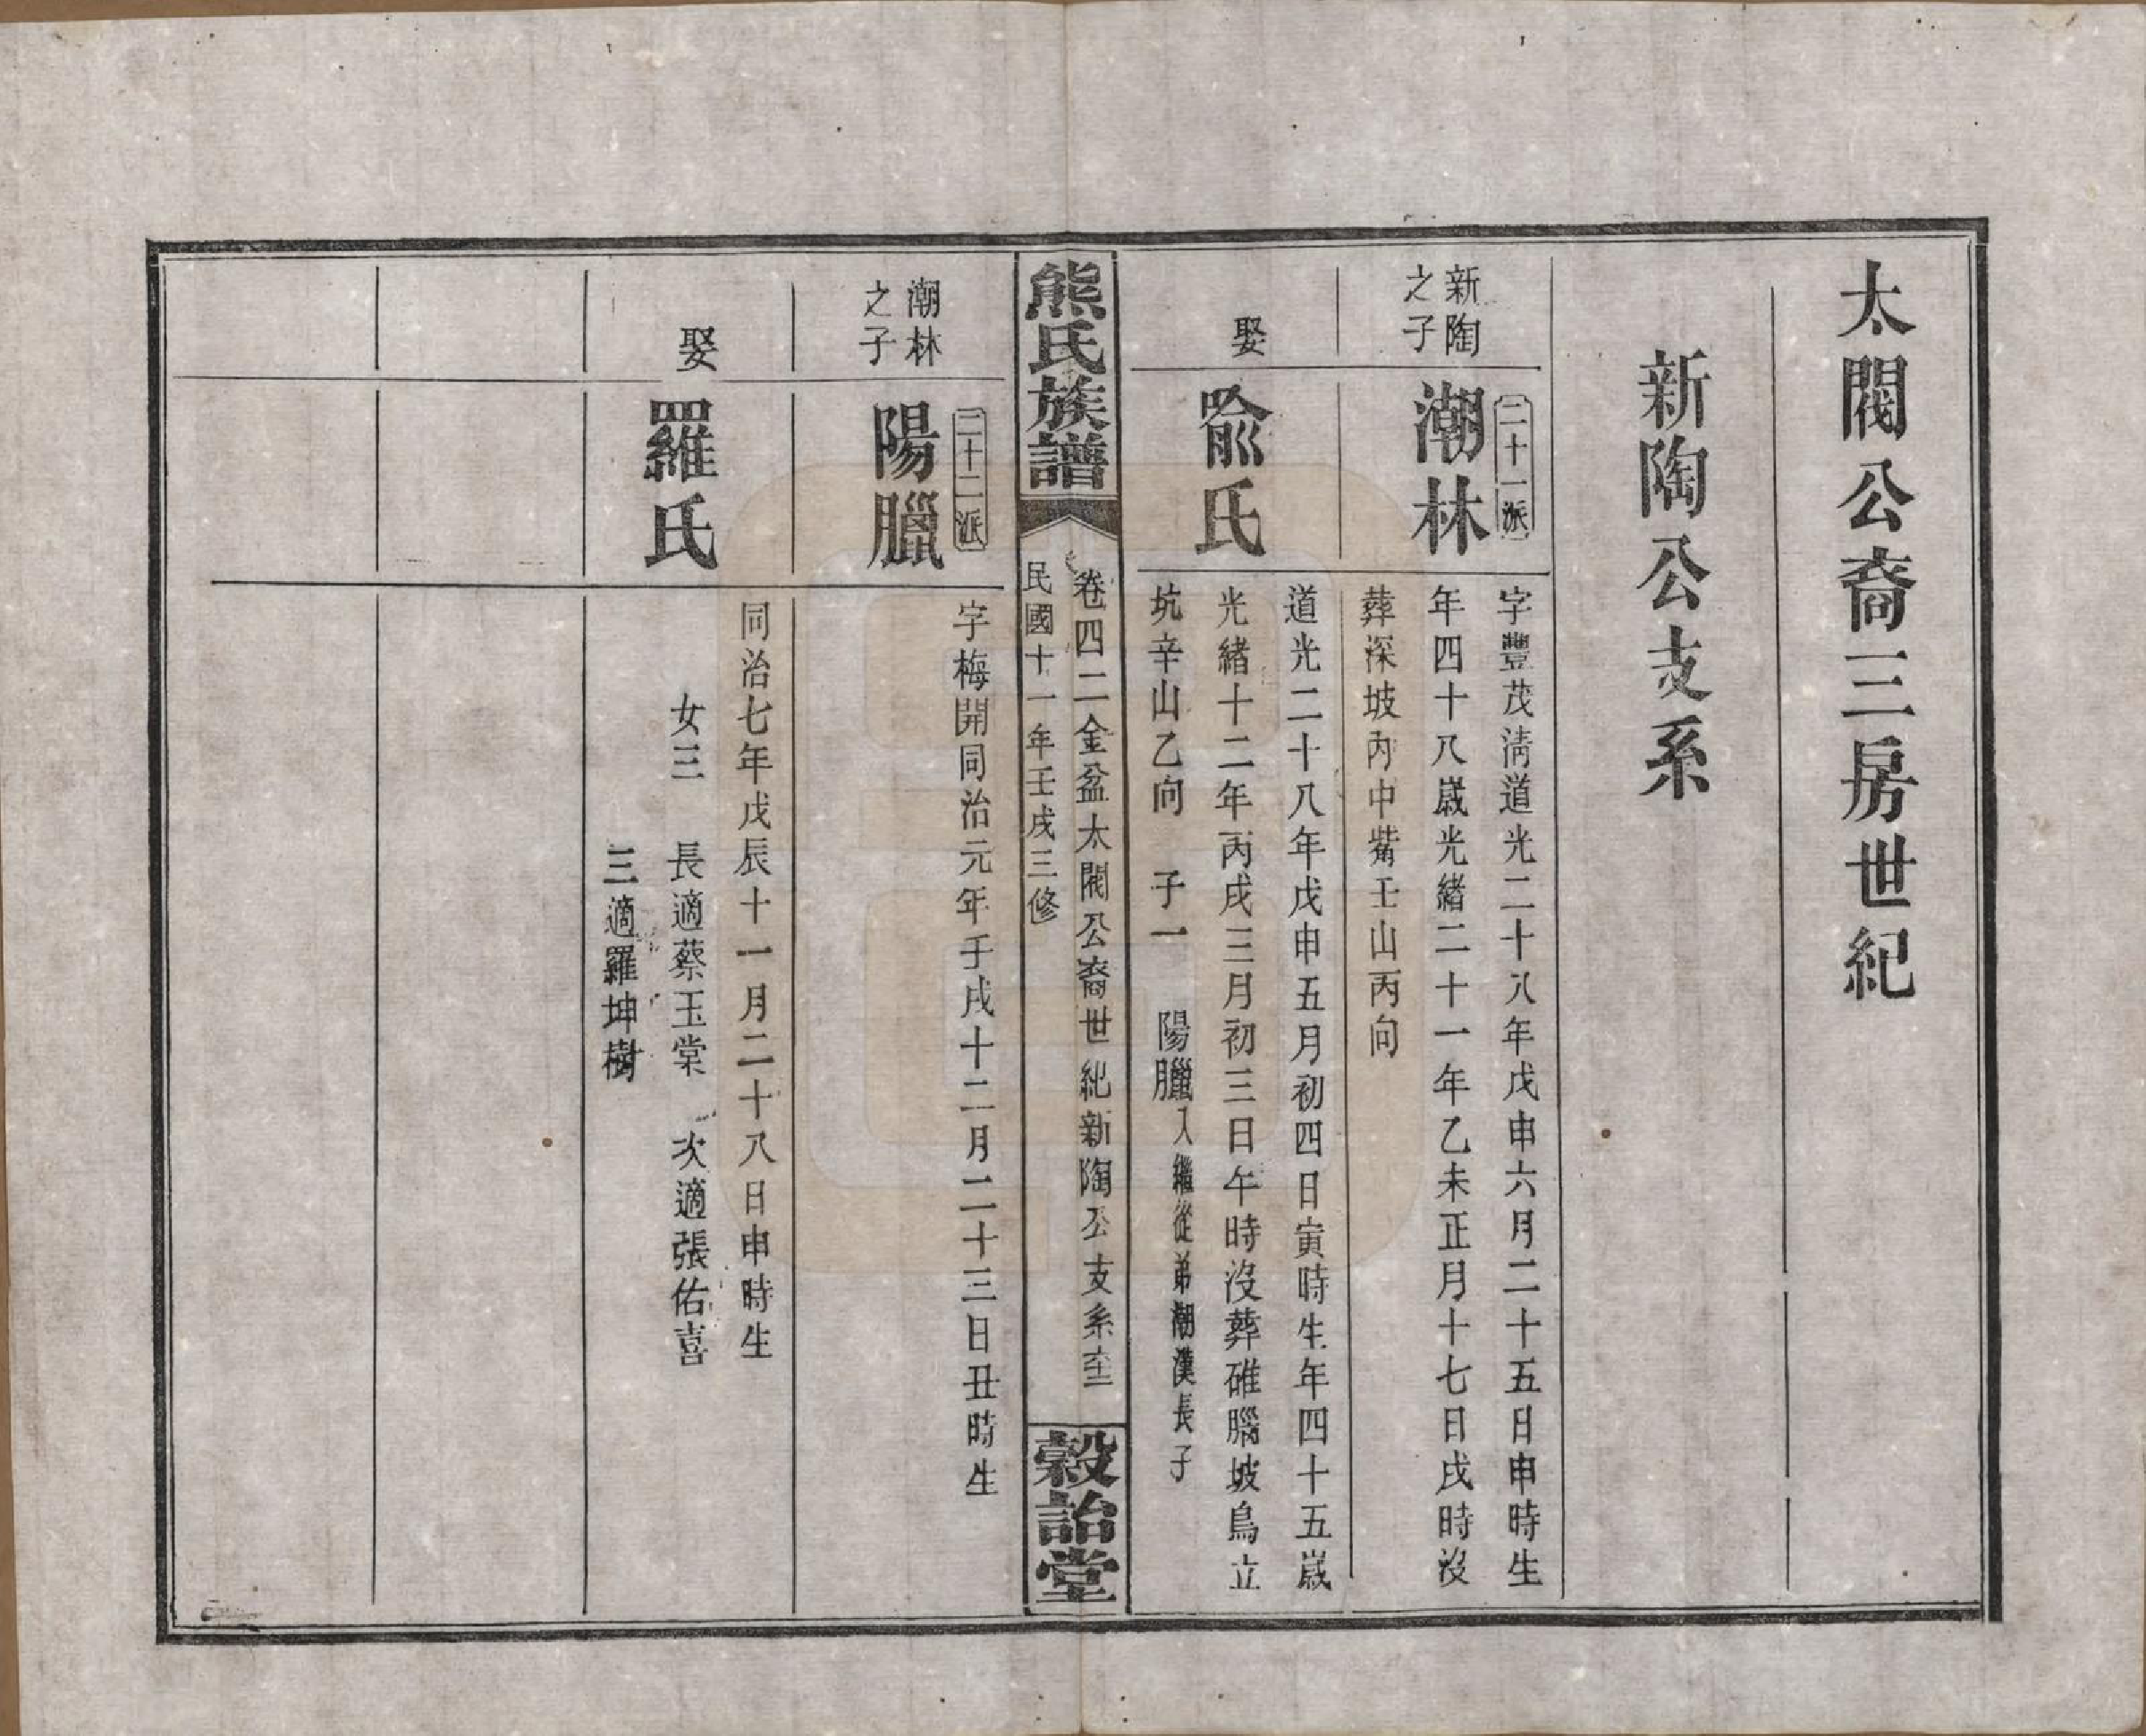 太閥公裔三房世紀
新陶公支系
新陶
之子
二十一派
潮林
字豐茂淸道光二十八年戊申六月二十五日申時生
年四十八歲光緒二十一年乙未正月十七日戌時沒
葬深坡內中觜壬山丙向
娶
喩氏
道光二十八年戊申五月初四日寅時生年四十五歲
光緒十二年丙戌三月初三日午時沒葬碓腦坡鳥立
坑辛山乙向 子一 陽臘入繼從弟潮漢長子
熊氏族譜
卷四二金盆太閥公裔世紀新陶公支系
民國十一年壬戌三修
穀詒堂
潮林
之子
二十二派
陽臘
字梅開同治元年壬戌十二月二十三日丑時生
娶
羅氏
同治七年戊辰十一月二十八日申時生
女三 長適蔡玉棠 次適張佑喜
三適羅坤樹